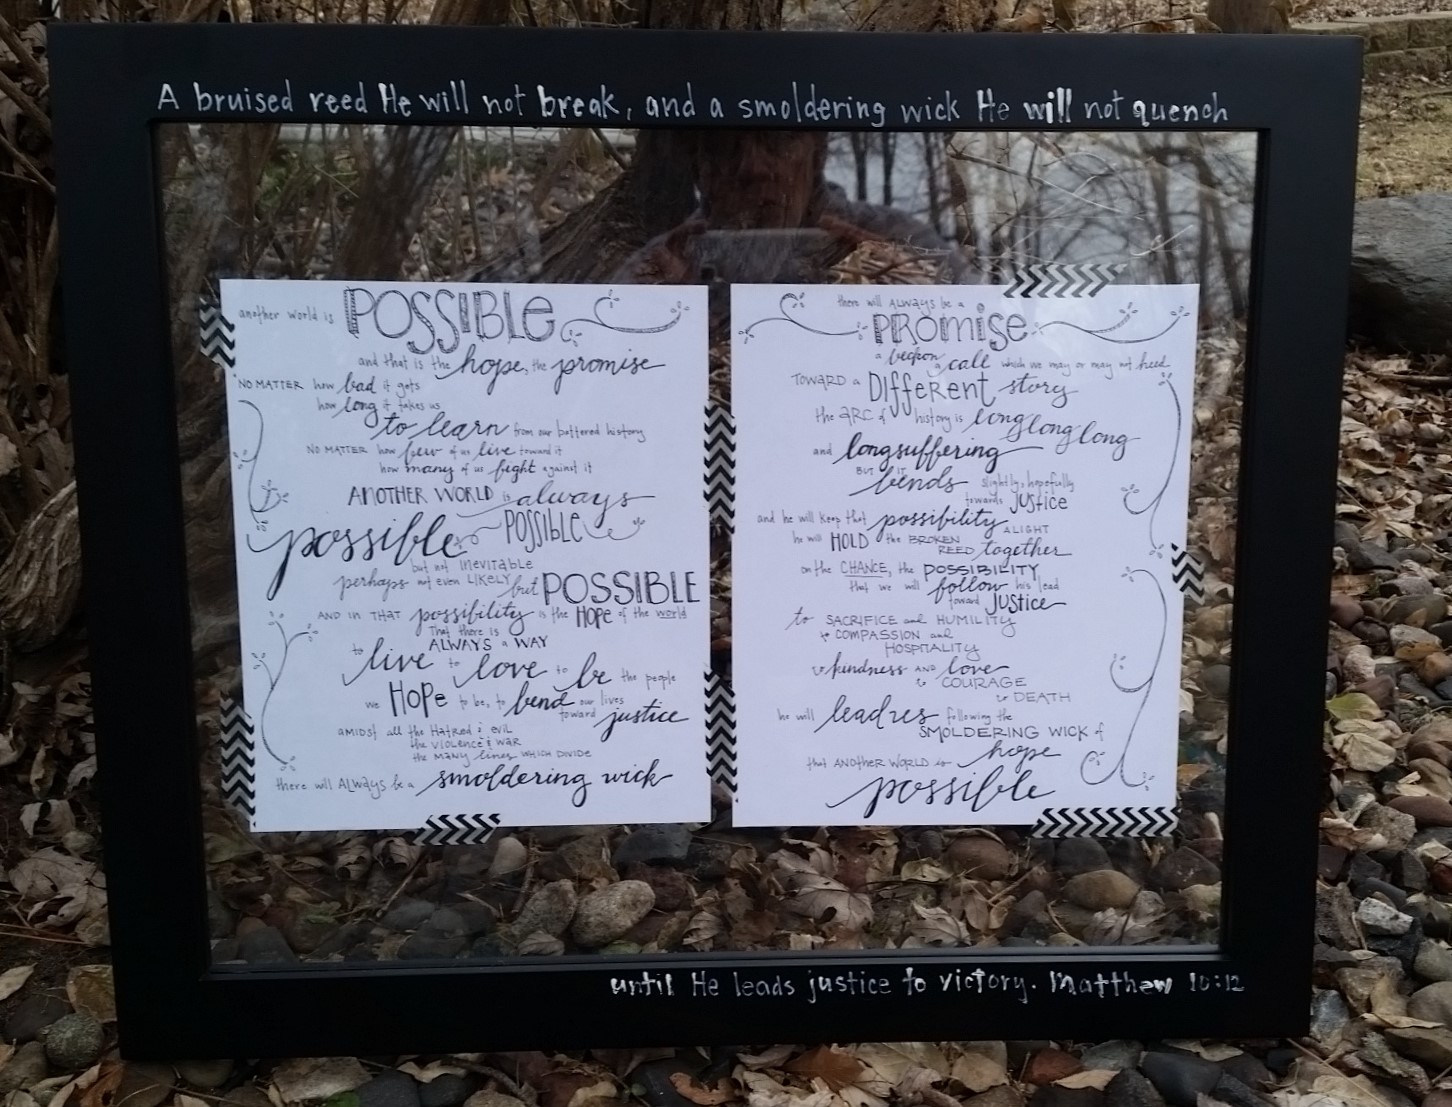 A bruised reed He will not break, and a smoldering wick He will not quench
another world is POSSIBLE
and that is the hope, the promise
NO MATTER how bad it gets
how long it takes us
to learn from our battered history
NO MATTER how few of us live toward it
how many of us fight against it
ANOTHER WORLD is always
possible POSSIBLE
but not INEVITABLE
perhaps not even LIKELY but POSSIBLE
AND IN THAT possibility is the HOPE of the world
That there is
ALWAYS a WAY
to live to love to be the people
we HOPE to be, to bend our lives
toward justice
AMIDST all the HATRED & EVIL
the VIOLENCE & WAR
the MANY lines WHICH DIVIDE
there will ALWAYS be a smoldering wick
there will ALWAYS be a
PROMISE
a beckon
a call which we may or may not heed
TOWARD a DIFFERENT story
the ARC of history is long long long
and longsuffering
BUT IT
bends slightly, hopefully
towards JUSTICE
and he will keep that possibility ALIGHT
he will HOLD the BROKEN
REED together
on the CHANCE, the POSSIBILITY
that we will follow his lead
toward JUSTICE
to SACRIFICE and HUMILITY
to COMPASSION and
HOSPITALITY
to kindness AND love
to COURAGE
to DEATH
he will lead us following the
SMOLDERING WICK of
hope
that ANOTHER WORLD is
possible
until He leads justice to victory. Matthew 10:12